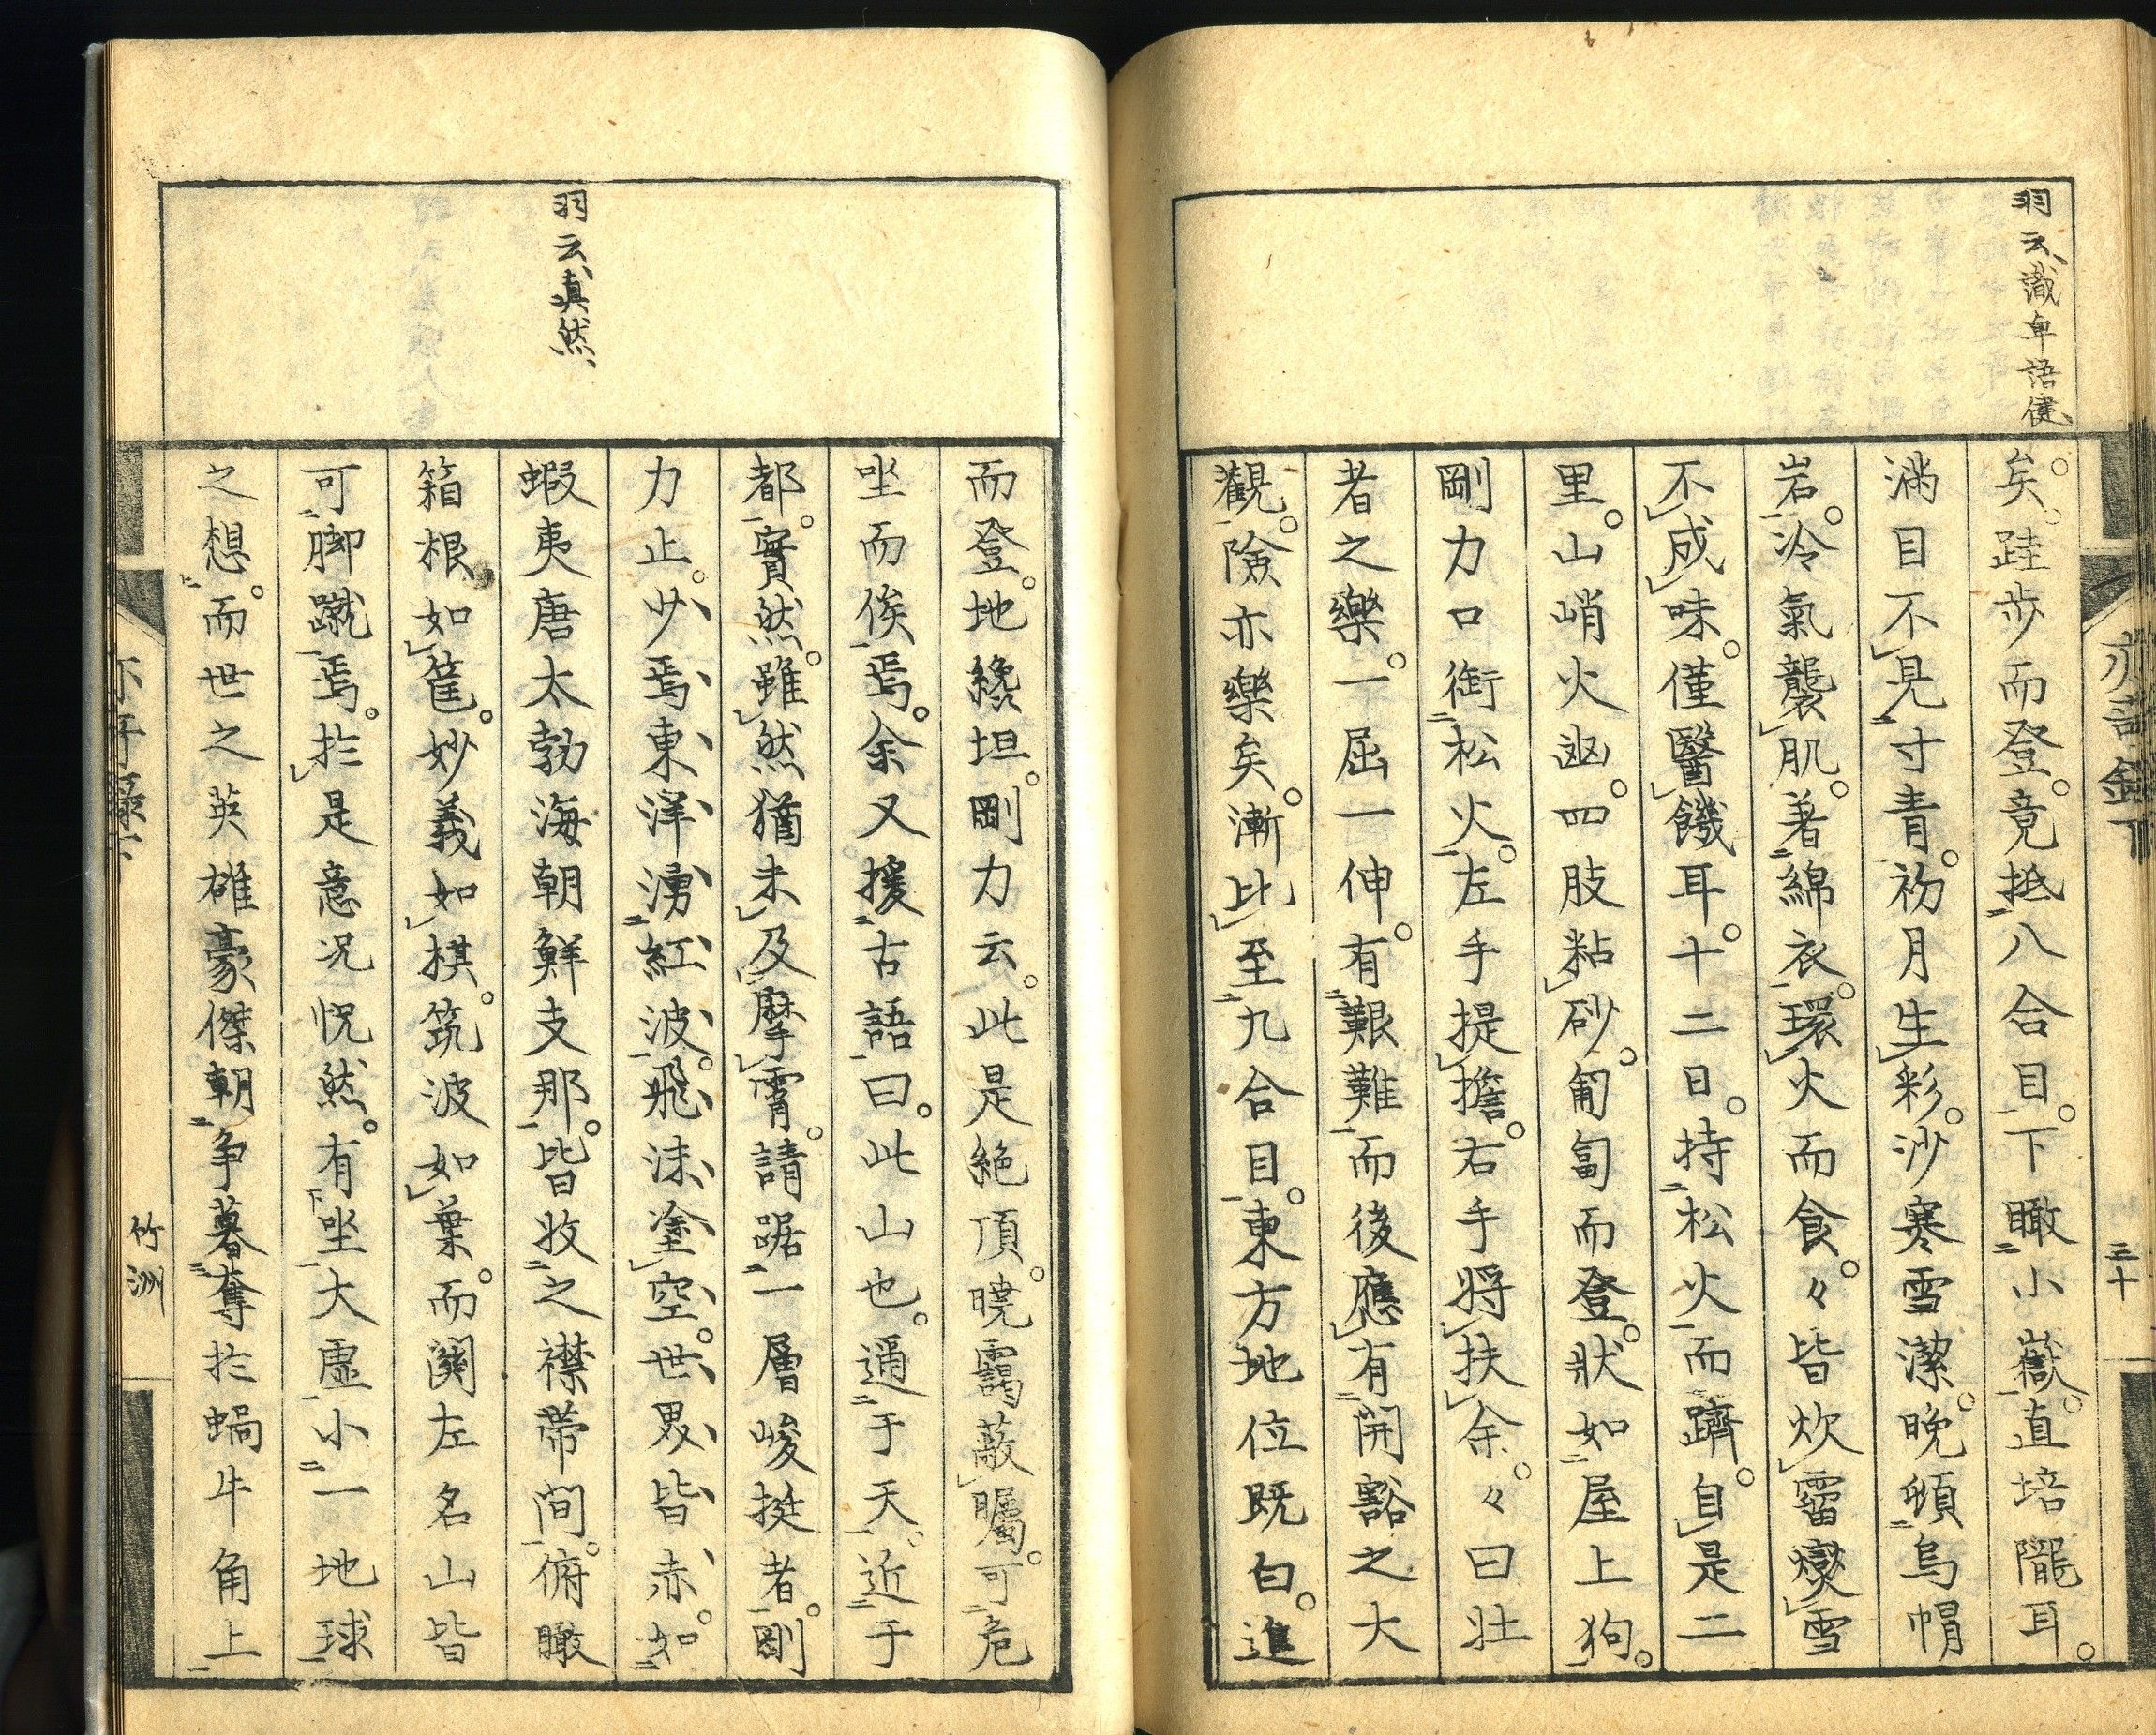 羽云識卓語健
矣。跬步而登。竟抵八合目。下瞰小嶽。直培隴耳。
滿目不見寸青。初月生彩。沙寒雪潔。晩頓烏帽
岩。冷氣襲肌。著綿衣。環火而食。々皆炊霤爕雪
不成味。僅醫饑耳。十二日。持松火而躋。自是二
里。山峭火凶。四肢粘砂。匍匐而登。狀如屋上狗。
剛力口銜松火。左手提擔。右手將扶余。々曰壯
者之樂。一屈一伸。有艱難而後應有開豁之大
觀。險亦樂矣。漸比至九合目。東方地位既白。進
三十
羽云真然
而登。地纔坦。剛力云。此是絶頂。曉靄蔽矚。可危
坐而俟焉。余又援古語曰。此山也。逼于天。近于
都。實然。雖然猶未及摩霄。請踞一層峻挺者。剛
力止。少焉東洋湧紅波。飛沫塗空。世界皆赤。如
蝦夷唐太勃海朝鮮支那。皆收之襟帶間。俯瞰
箱根如筐。妙義如棋。筑波如葉。而関左名山皆
可脚蹴焉。於是意况怳然。有坐大虛小一地球
之想。而世之英雄豪傑朝爭暮奪於蝸牛角上
竹洲